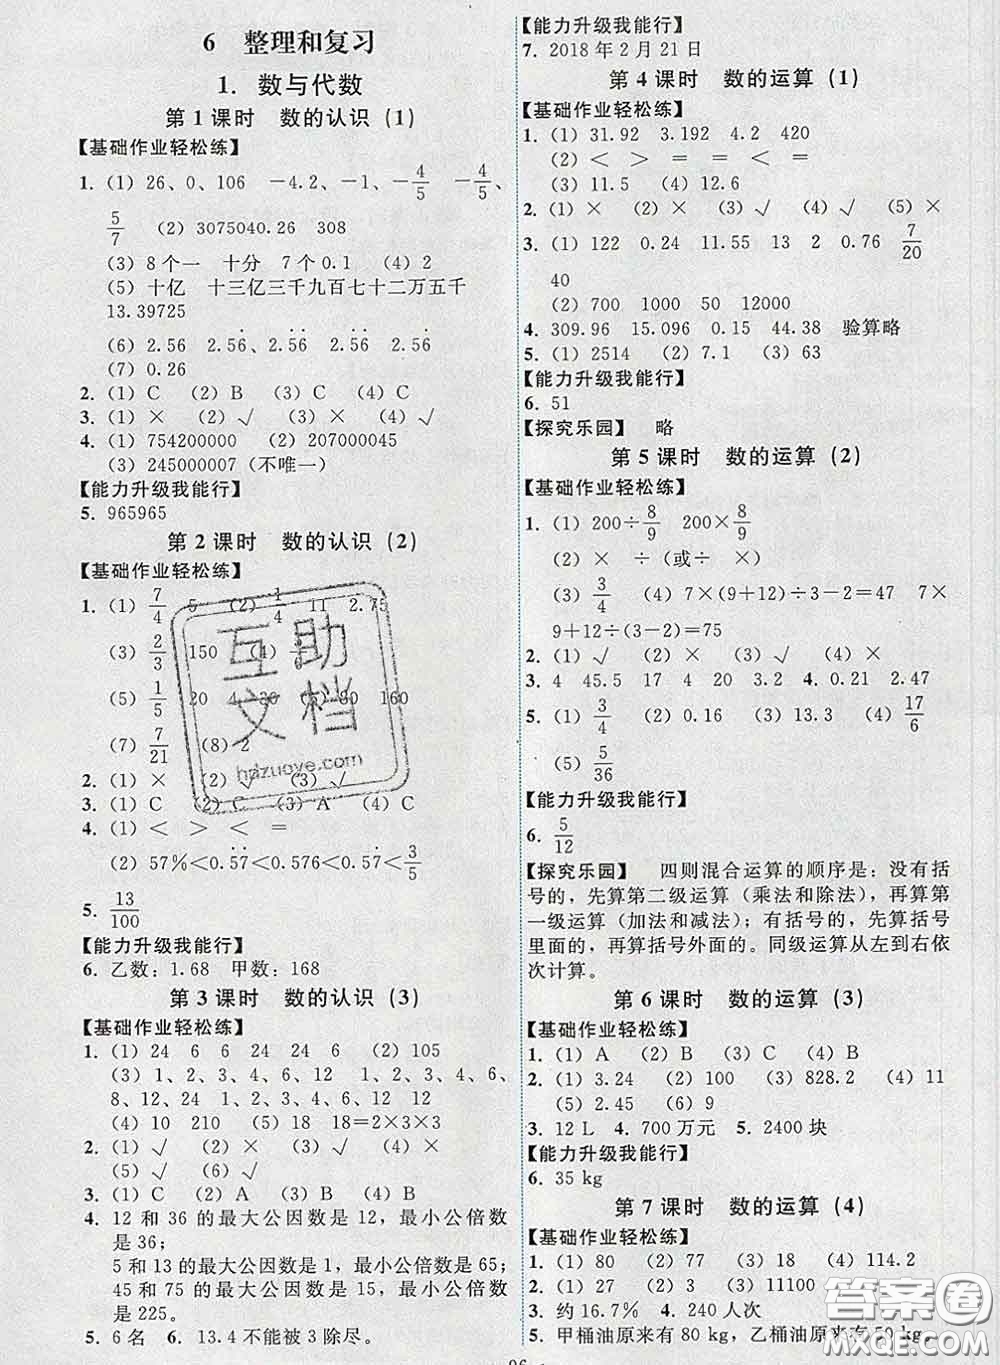 6 整理和复习
1. 数与代数
第 1 课时 数的认识 (1)
【基础作业轻松练】
1. (1) 26、0、106 －4.2、－1、－4/5 －4/5、
5/7 (2) 3075040.26 308
(3) 8 个一 十分 7 个 0.1 (4) 2
(5) 十亿 十三亿三千九百七十二万五千
13.39725
(6) 2.56 2.56、2.56 2.56 2.56
(7) 0.26
2. (1) C (2) B (3) C (4) C
3. (1) × (2) √ (3) × (4) √
4. (1) 754200000 (2) 207000045
(3) 245000007 (不唯一)
【能力升级我能行】
5. 965965
第 2 课时 数的认识 (2)
【基础作业轻松练】
1. (1) 7/4 5 (2) 1/4 11 2.75
(3) 2/3 150 (4)
(5) 1/5 20 4 30 (6) 80 160
(7) 7/21 (8) 2
2. (1) × (2) √ (3) √
3. (1) C (2) C (3) A (4) C
4. (1) ＜ ＞ ＜ ＝
(2) 57%＜0.5̇7̇＜0.57̇＜3/5
5. 13/100
【能力升级我能行】
6. 乙数：1.68 甲数：168
第 3 课时 数的认识 (3)
【基础作业轻松练】
1. (1) 24 6 6 24 24 6 (2) 105
(3) 1、2、3、4、6、12 1、2、3、4、6、
8、12、24 1、2、3、4、6、12 12
(4) 10 210 (5) 18 18＝2×3×3
2. (1) √ (2) × (3) √ (4) ×
(5) √ (6) √
3. (1) C (2) A (3) C (4) C
4. 12 和 36 的最大公因数是 12，最小公倍数
是 36；
5 和 13 的最大公因数是 1，最小公倍数是 65；
45 和 75 的最大公因数是 15，最小公倍数
是 225。
5. 6 名 6. 13.4 不能被 3 除尽。
【能力升级我能行】
7. 2018 年 2 月 21 日
第 4 课时 数的运算 (1)
【基础作业轻松练】
1. (1) 31.92 3.192 4.2 420
(2) ＜ ＞ ＝ ＝ ＜ ＝
(3) 11.5 (4) 12.6
2. (1) × (2) × (3) √ (4) √ (5) ×
3. (1) 122 0.24 11.55 13 2 0.76 7/20
40
(2) 700 1000 50 12000
4. 309.96 15.096 0.15 44.38 验算略
5. (1) 2514 (2) 7.1 (3) 63
【能力升级我能行】
6. 51
【探究乐园】 略
第 5 课时 数的运算 (2)
【基础作业轻松练】
1. (1) 200÷8/9 200×8/9
(2) × ÷ (或÷ ×)
(3) 3/4 (4) 7×(9＋12)÷3－2＝47 7×
9＋12÷(3－2)＝75
2. (1) √ (2) × (3) × (4) √
3. 4 45.5 17 4 20 3.2 4. 0.21 2.47
5. (1) 3/4 (2) 0.16 (3) 13.3 (4) 17/6
(5) 5/36
【能力升级我能行】
6. 5/12
【探究乐园】 四则混合运算的顺序是：没有括
号的，先算第二级运算（乘法和除法），再算第
一级运算（加法和减法）；有括号的，先算括号
里面的，再算括号外面的。同级运算从左到右依
次计算。
第 6 课时 数的运算 (3)
【基础作业轻松练】
1. (1) A (2) B (3) C (4) B
2. (1) 3.24 (2) 100 (3) 828.2 (4) 11
(5) 2.45 (6) 9
3. 12 L 4. 700 万元 5. 2400 块
【能力升级我能行】
6. 35 kg
第 7 课时 数的运算 (4)
【基础作业轻松练】
1. (1) 80 (2) 77 (3) 18 (4) 114.2
2. (1) 27 (2) 3 (3) 11100
3. 约 16.7% 4. 240 人次
5. 甲桶油原来有 80 kg，乙桶油原来有
互助
文档
hdzuoye.com
答案圈
MXQE.COM